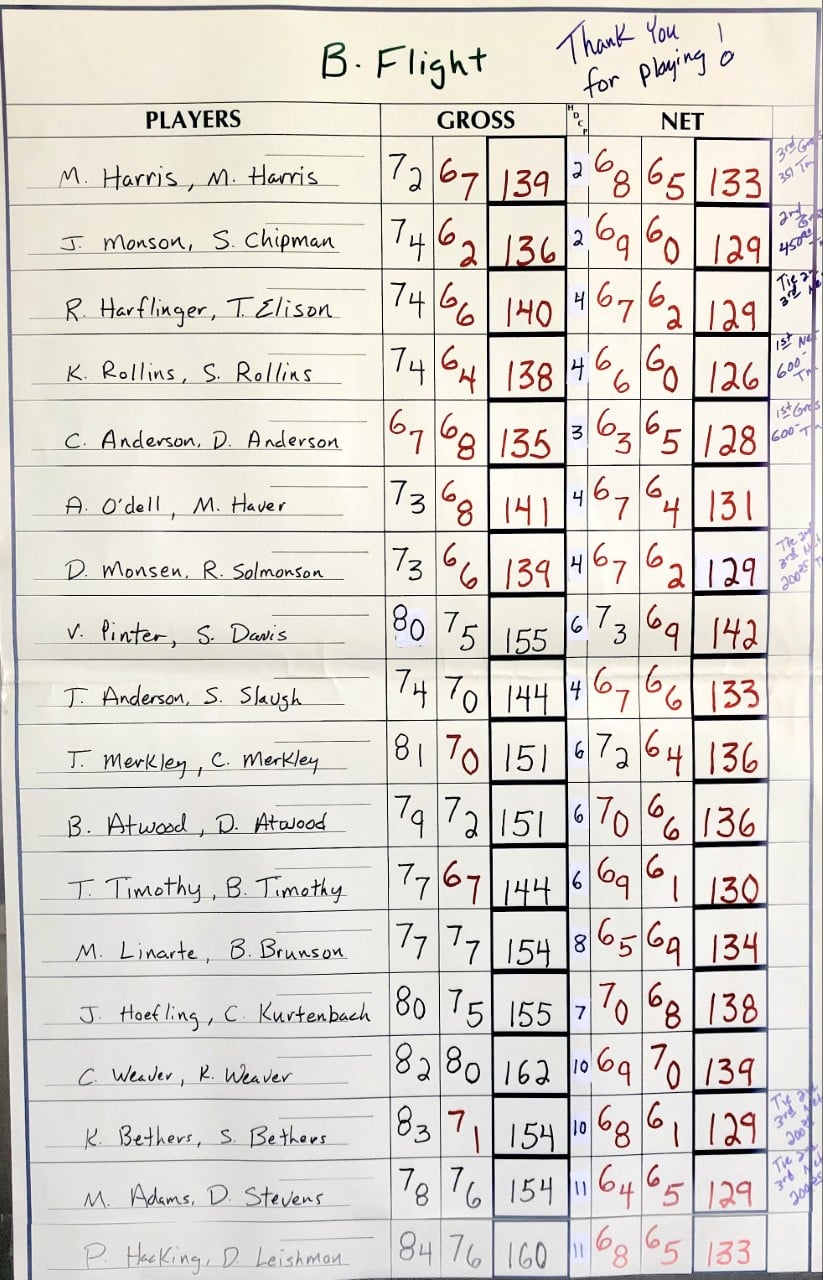 B. Flight
Thank You
for playing!
PLAYERS GROSS HDCP NET
M. Harris, M. Harris 72 67 139 2 68 65 133 3rd
J. Monson, S. Chipman 74 62 136 2 69 60 129 2nd
R. Harflinger, T. Elison 74 66 140 4 67 62 129 Tie 2nd 3rd
K. Rollins, S. Rollins 74 64 138 4 66 60 126 1st Net 600-
C. Anderson, D. Anderson 67 68 135 3 63 65 128 1st Gross 600-
A. O'dell, M. Haver 73 68 141 4 67 64 131
D. Monsen, R. Solmonson 73 66 139 4 67 62 129 Tie 2nd 3rd
V. Pinter, S. Davis 80 75 155 6 73 69 142
T. Anderson, S. Slaugh 74 70 144 4 67 66 133
T. Merkley, C. Merkley 81 70 151 6 72 64 136
B. Atwood, D. Atwood 79 72 151 6 70 66 136
T. Timothy, B. Timothy 77 67 144 6 69 61 130
M. Linarte, B. Brunson 77 77 154 8 65 69 134
J. Hoefling, C. Kurtenbach 80 75 155 7 70 68 138
C. Weaver, K. Weaver 82 80 162 10 69 70 139
K. Bethers, S. Bethers 83 71 154 10 68 61 129 Tie 3rd
M. Adams, D. Stevens 78 76 154 11 64 65 129 Tie 3rd
P. Hacking, D. Leishman 84 76 160 11 68 65 133